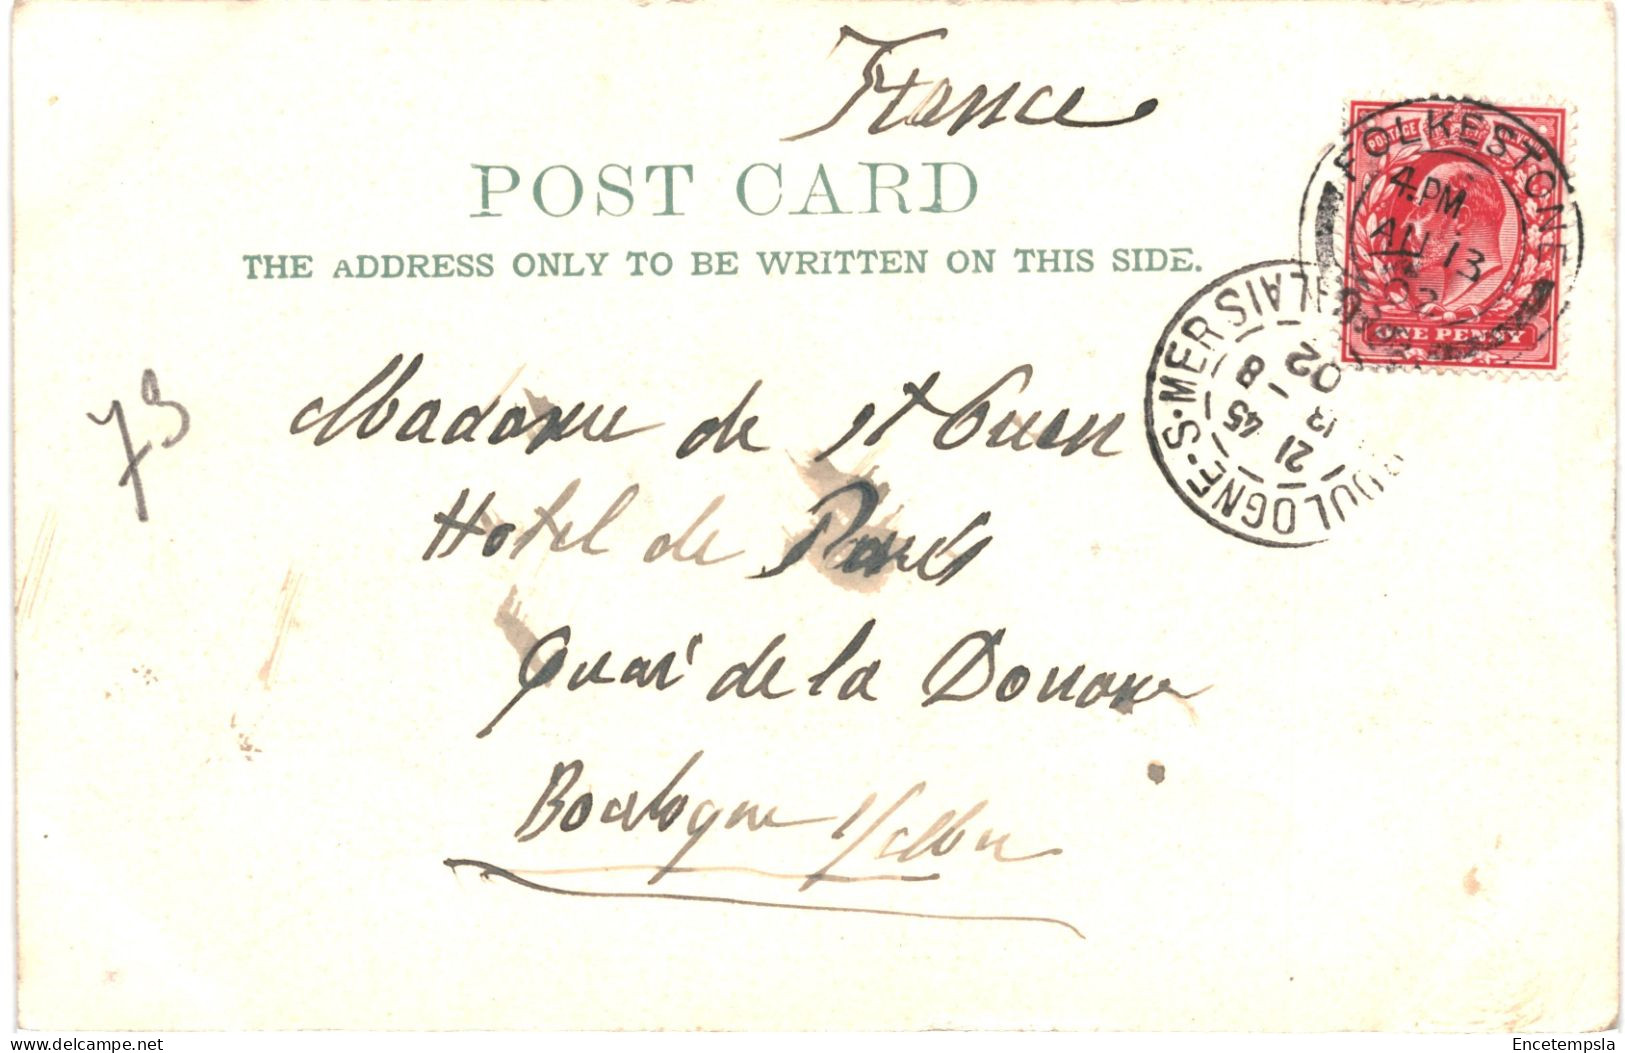 France
POST CARD
THE ADDRESS ONLY TO BE WRITTEN ON THIS SIDE.
POSTAGE
ONE PENNY
FOLKESTONE
4.PM
AU 13
02
BOULOGNE-S-MER
21 45
13 8
02
73
Madame de St Ouen
Hotel de Paris
Quai de la Douane
Boulogne s/Mer
Encetempsla